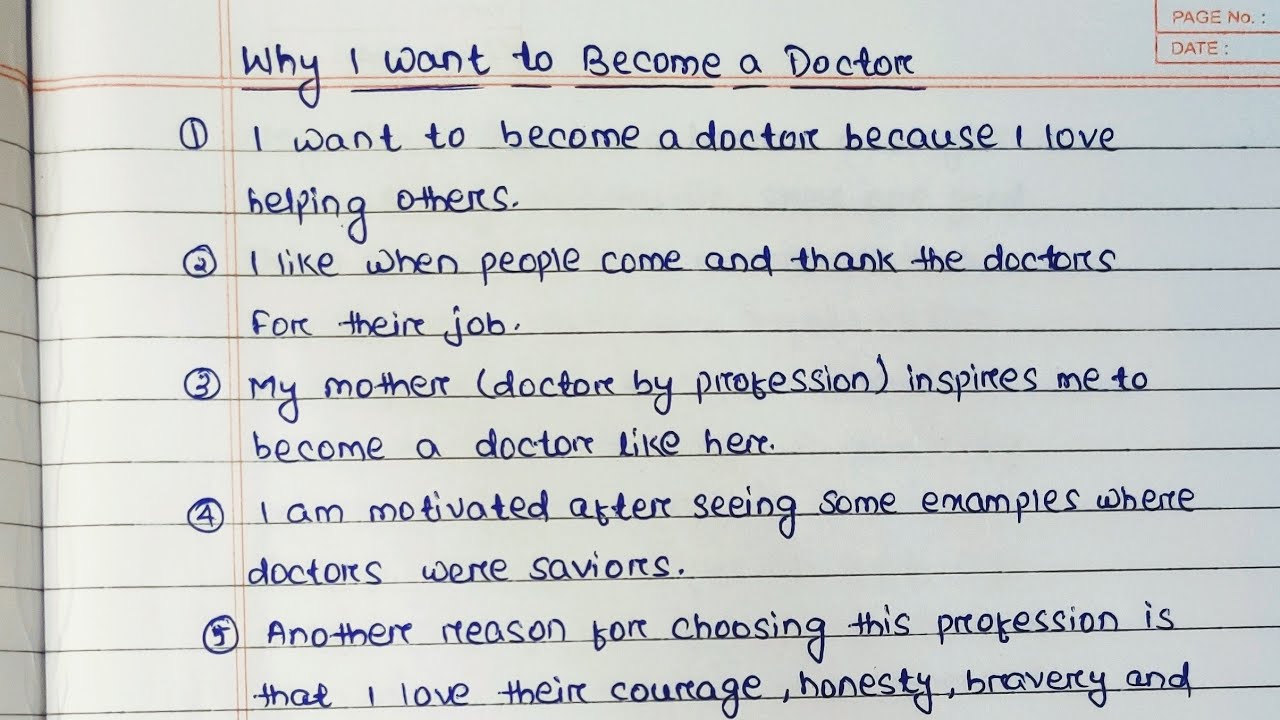 PAGE No. :
DATE :
Why I want to Become a Doctor
① I want to become a doctor because I love
helping others.
② I like when people come and thank the doctors
For their job.
③ My mother (doctor by profession) inspires me to
become a doctor like her.
④ I am motivated after seeing some examples where
doctors were saviors.
⑤ Another reason for choosing this profession is
that I love their courage, honesty, bravery and